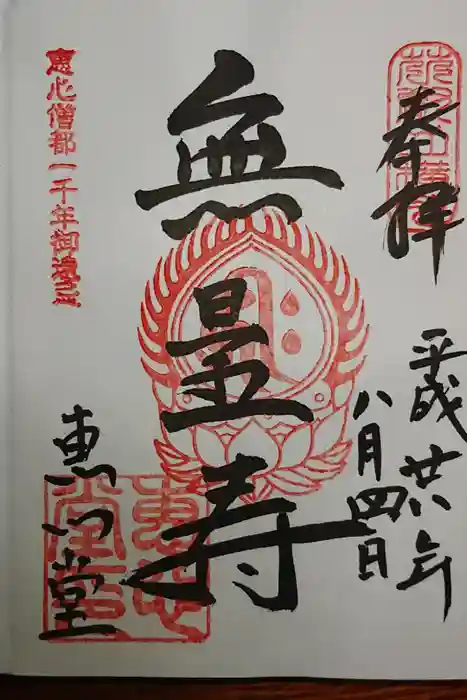 奉拝
平成廿八年
八月四日
無量寿
恵心堂
恵心僧都一千年御遠忌
恵心堂印